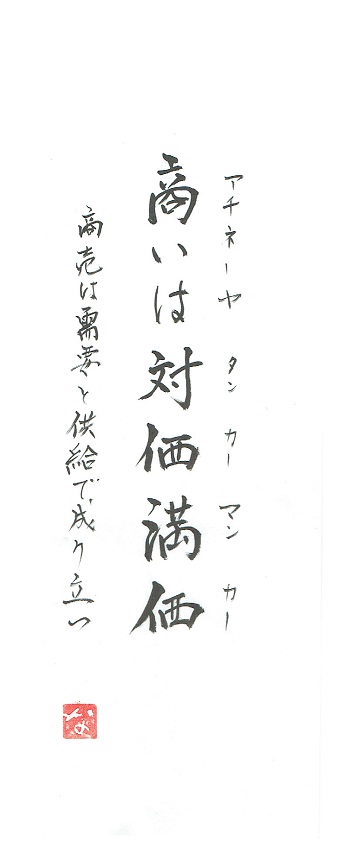 アチネーヤ タンカー マンカー
商いは対価満価
商売は需要と供給で成り立つ